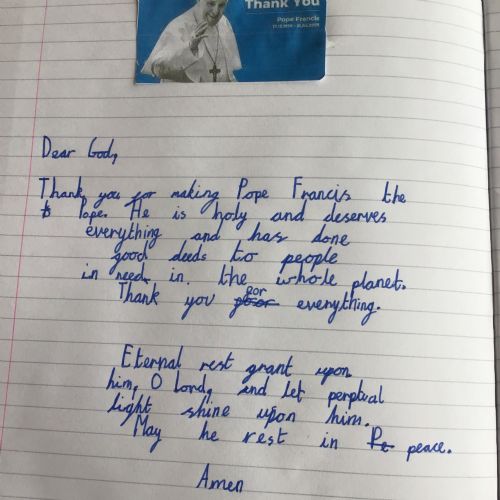 Thank You
Pope Francis
Dear God,
Thank you for making Pope Francis the
Pope. He is holy and deserves
everything and has done
good deeds to people
in need in the whole planet.
Thank you for everything.
Eternal rest grant upon
him, O Lord, and let perptual
light shine upon him.
May he rest in peace.
Amen